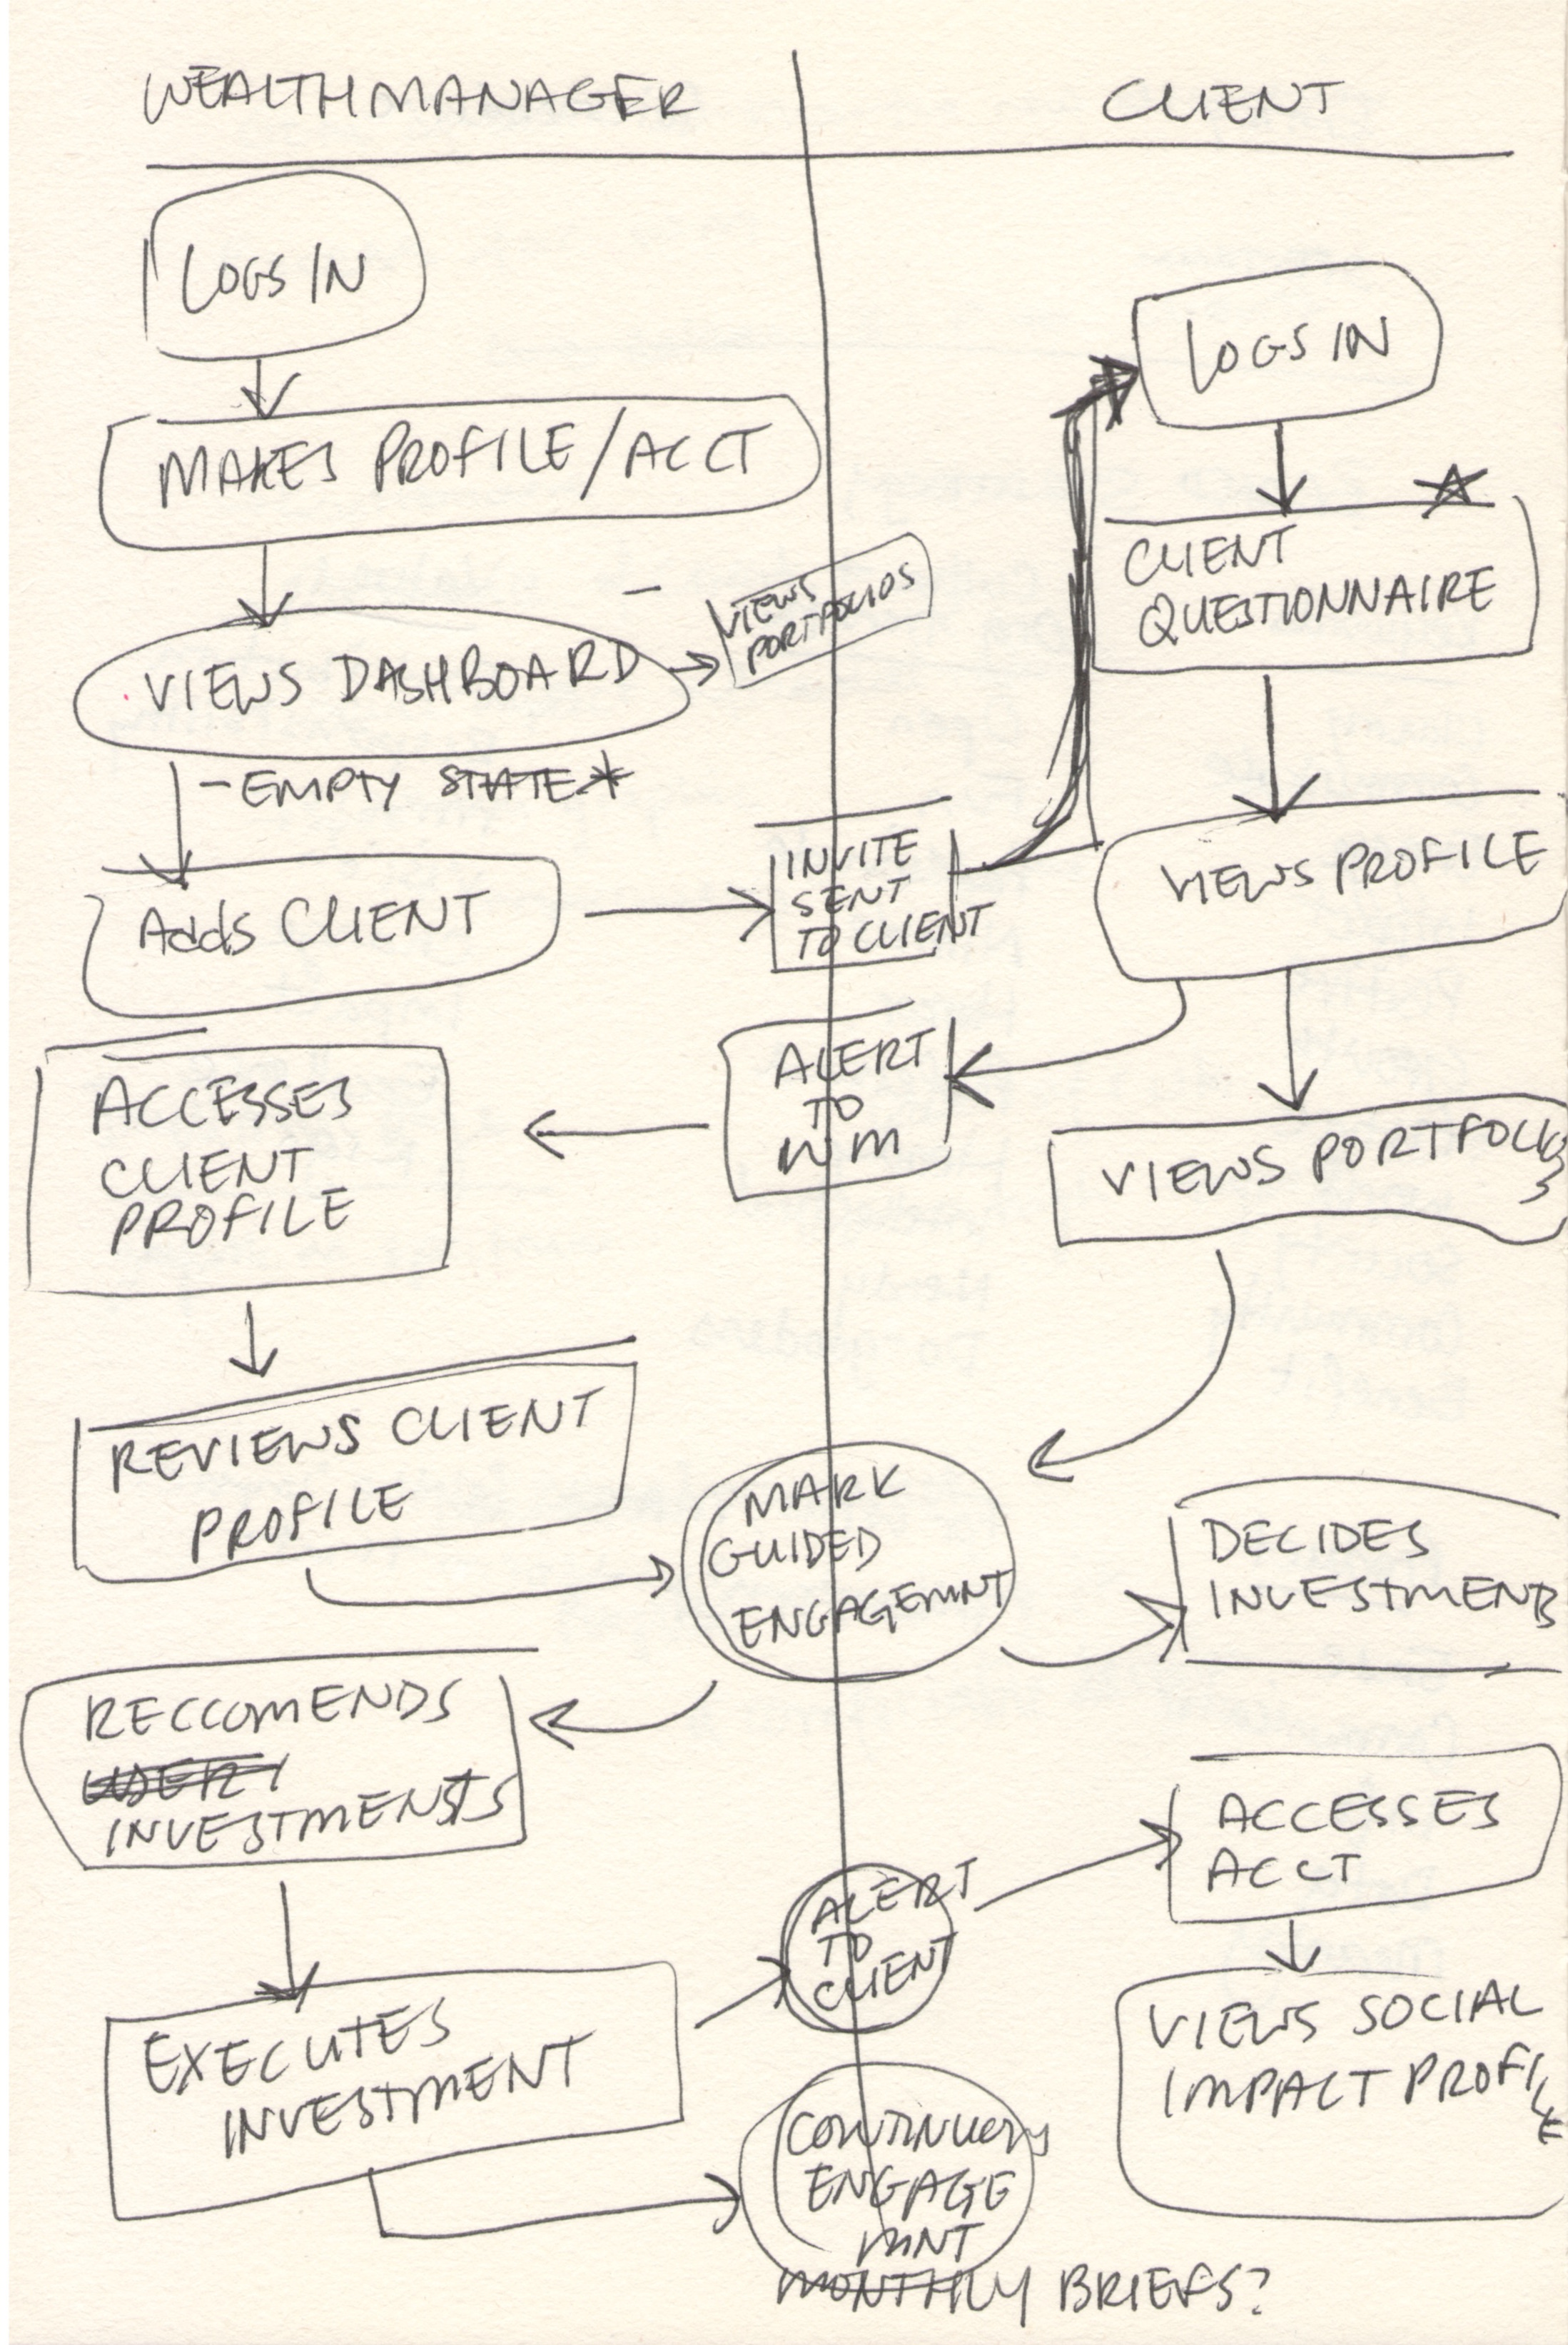 WEALTH MANAGER
CLIENT
LOGS IN
LOGS IN
MAKES PROFILE/ACCT
CLIENT
QUESTIONNAIRE
VIEWS
PORTFOLIOS
VIEWS DASHBOARD
- EMPTY STATE*
INVITE
SENT
TO CLIENT
VIEWS PROFILE
Adds CLIENT
ALERT
TO
WM
ACCESSES
CLIENT
PROFILE
VIEWS PORTFOLIOS
REVIEWS CLIENT
PROFILE
MARK
GUIDED
ENGAGEMNT
DECIDES
INVESTMENTS
RECCOMENDS
INVESTMENSTS
ACCESSES
ACCT
ALERT
TO
CLIENT
EXECUTES
INVESTMENT
VIEWS SOCIAL
IMPACT PROFILE
ENGAGE
MNT
MONTHLY BRIEFS?